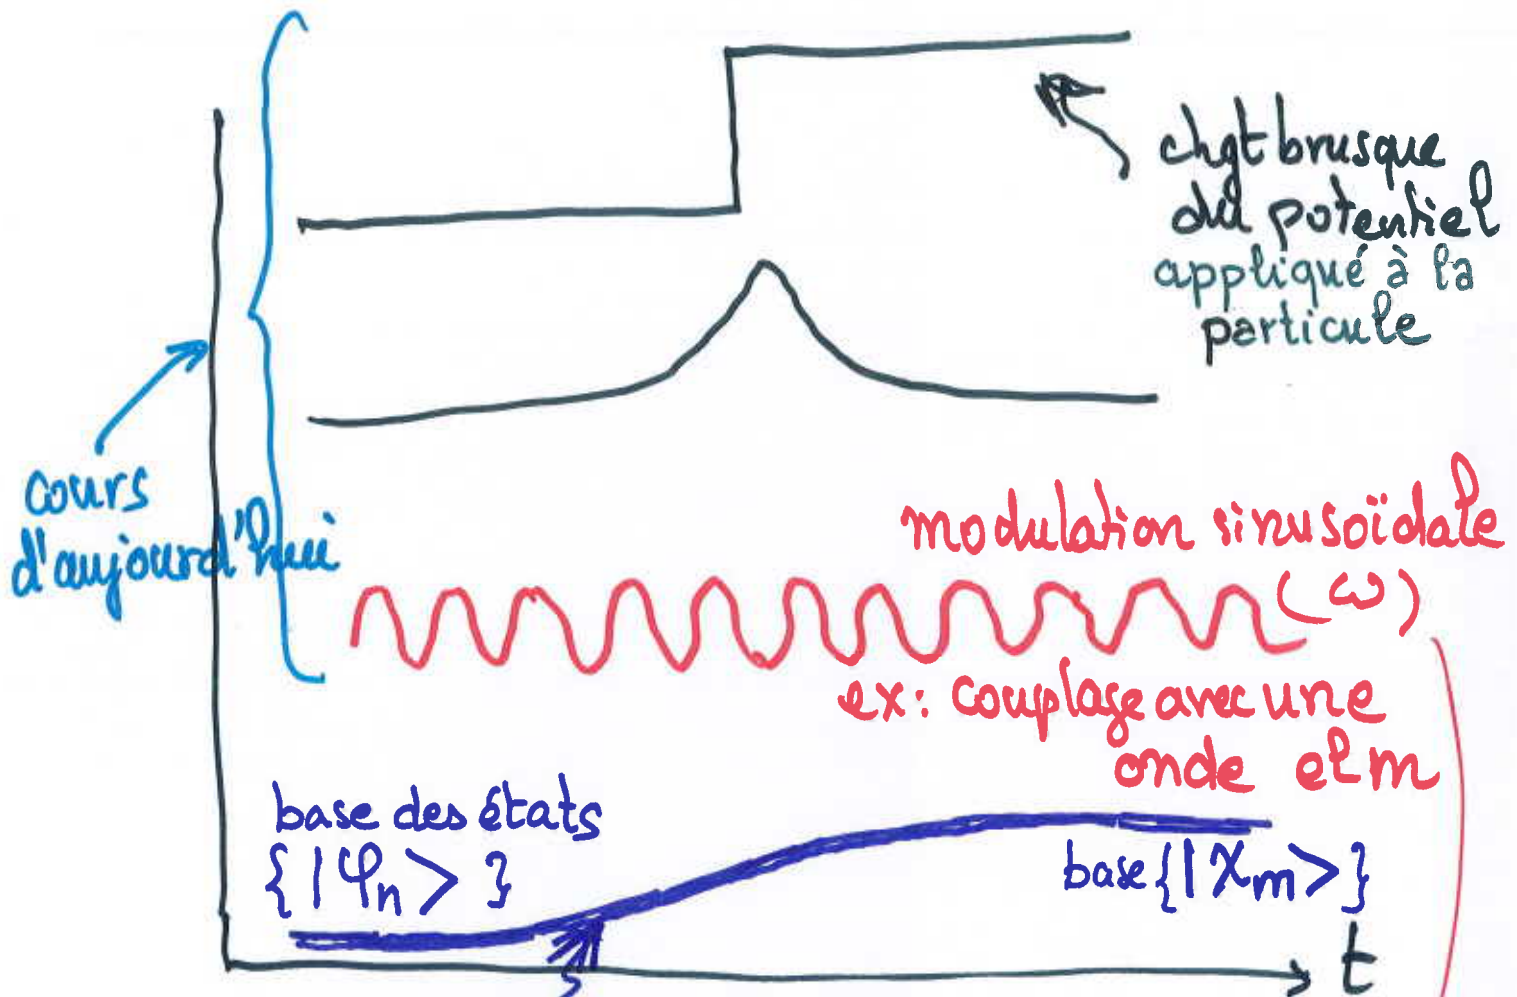 chgt brusque
du potentiel
appliqué à la
particule
cours
d'aujourd'hui
modulation sinusoïdale
(ω)
ex: couplage avec une
onde elm
base des états
{|φn>}
base {|χm>}
t